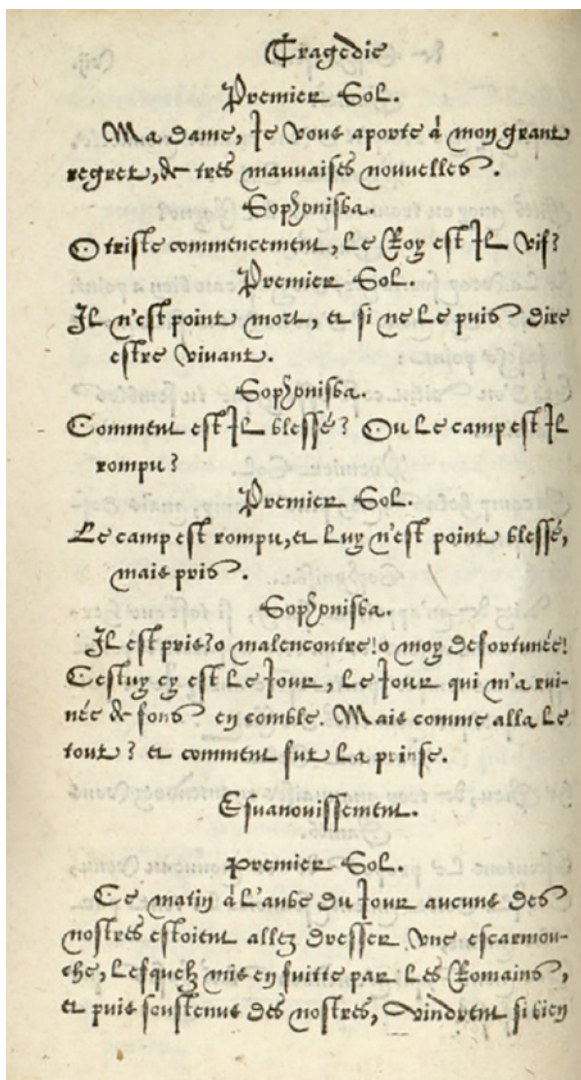 Tragedie
Premier Sol.
Ma dame, Je vous aporte à mon grant
regret, de trés mauvaises nouvelles.
Sophonisba.
O triste commencement, Le Roy est Il vif?
Premier Sol.
Il n'est point mort, et si ne Le puis dire
estre vivant.
Sophonisba.
Comment est Il blessé? Ou Le camp est Il
rompu?
Premier Sol.
Le camp est rompu, et Luy n'est point blessé,
mais pris.
Sophonisba.
Il est pris? o malencontre! o moy desortunée!
Cestuy cy est Le Jour, Le Jour qui m'a rui-
née de fons en comble. Mais comme alla Le
tout? et comment fut La prinse.
Esvanouissement.
Premier Sol.
Ce matin à L'aube du Jour aucuns des
nostres estoient allez dresser une escarmou-
che, Lesquelz mis en fuitte par Les Romains,
et puis soustenus des nostres, vindrent si bien